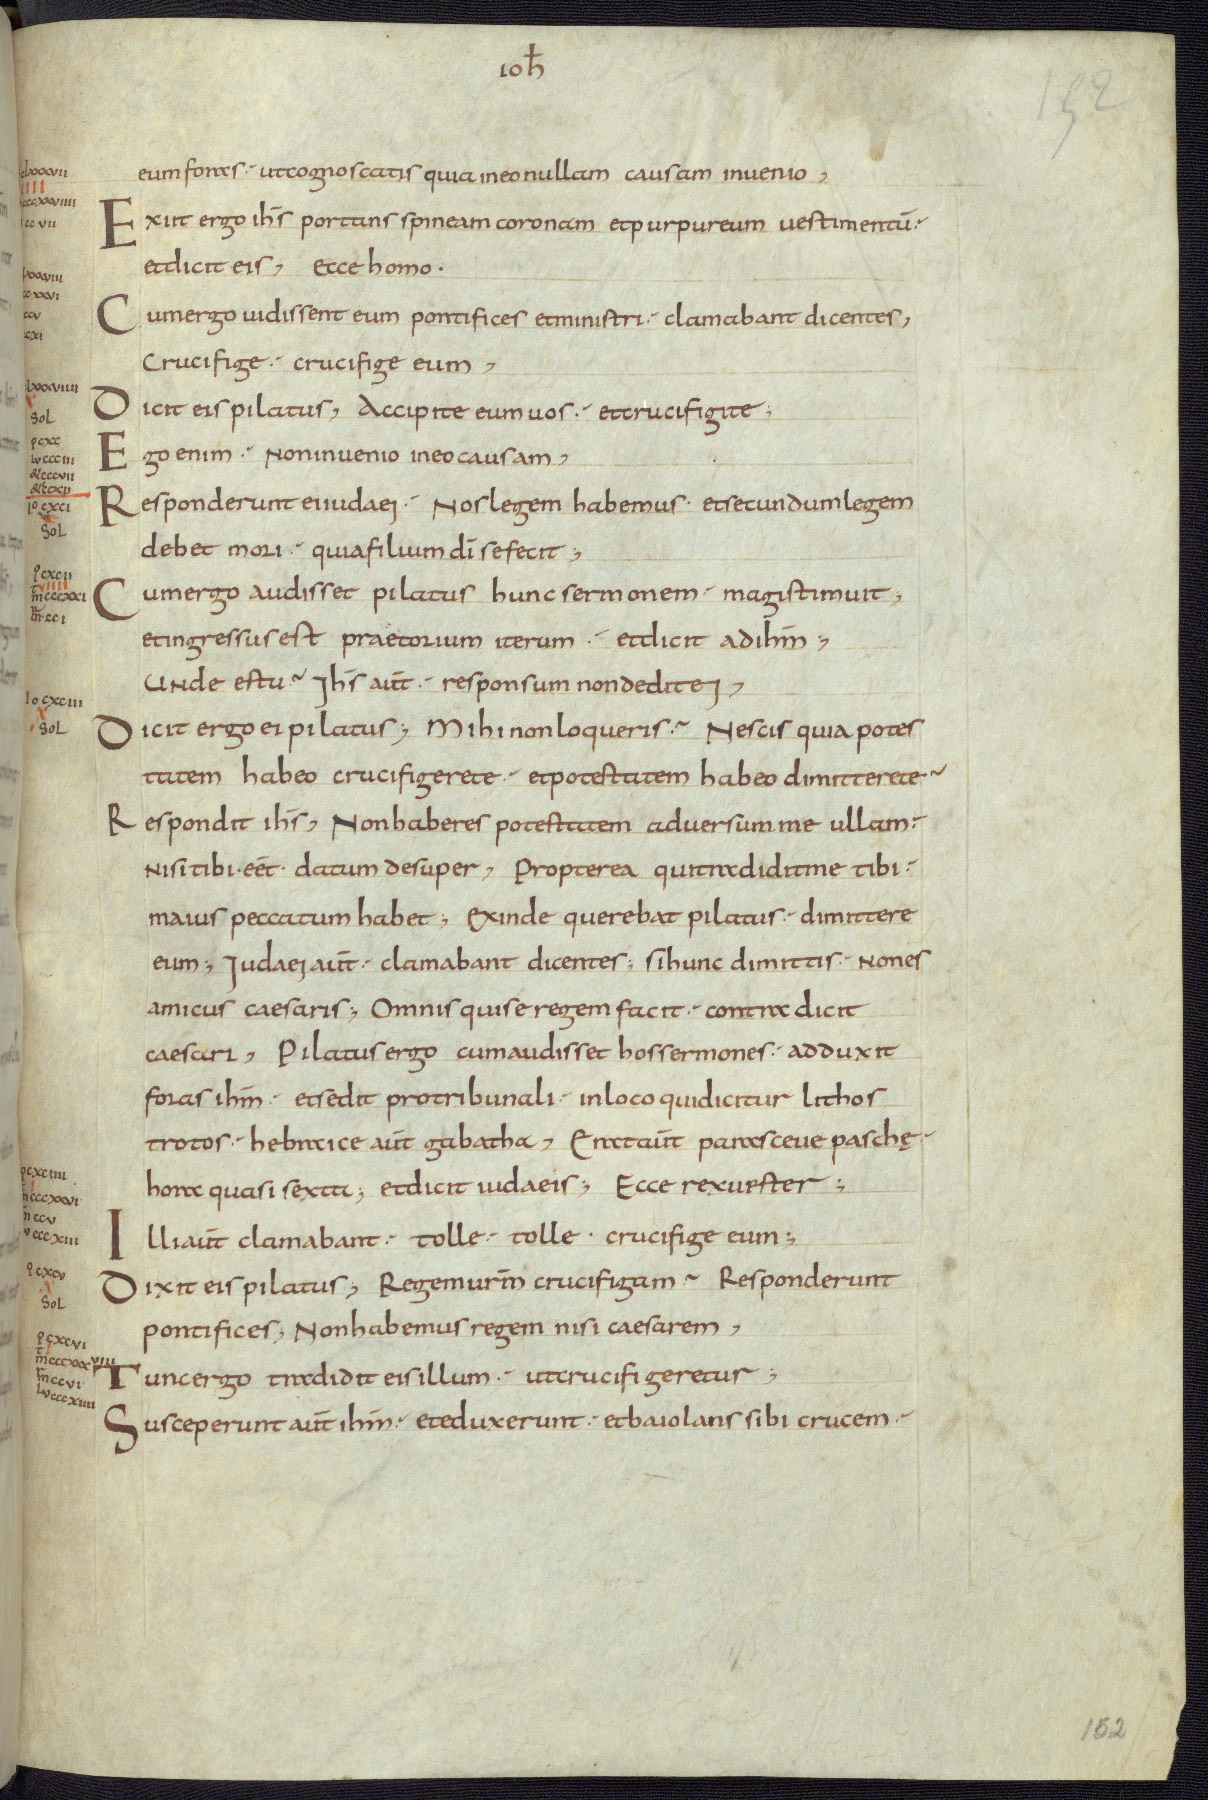 ioħ
152
eum foras · ut cognoscatis quia in eo nullam causam invenio,
Exiit ergo ih̅s portans spineam coronam et purpureum vestimentu̅ ·
et dicit eis, ecce homo ·
Cum ergo vidissent eum pontifices et ministri · clamabant dicentes,
Crucifige · crucifige eum,
Dicit eis pilatus, Accipite eum vos · et crucifigite;
Ego enim · Non invenio in eo causam,
Responderunt ei iudaei · Nos legem habemus · et secundum legem
debet mori · quia filium di̅ se fecit;
Cum ergo audisset pilatus hunc sermonem · magis timuit;
et ingressus est praetorium iterum · et dicit ad ihm̅;
Unde es tu? Ih̅s aut̅ · responsum non dedit ei,
Dicit ergo ei pilatus; Mihi non loqueris? Nescis quia potes
tatem habeo crucifigere te · et potestatem habeo dimittere te?
Respondit ih̅s, Non haberes potestatem adversum me ullam ·
nisi tibi · eet̅ · datum desuper, Propterea qui tradidit me tibi ·
maius peccatum habet; Exinde querebat pilatus · dimittere
eum; Iudaei aut̅ · clamabant dicentes; si hunc dimittis · non es
amicus caesaris; Omnis qui se regem facit · contradicit
caesari, Pilatus ergo cum audisset hos sermones · adduxit
foras ihm̅ · et sedit pro tribunali · in loco qui dicitur lithos
trotos · hebraice aut̅ gabatha, Erat aut̅ parasceve paschę ·
hora quasi sexta; et dicit iudaeis; Ecce rex vester;
Illi aut̅ clamabant · tolle · tolle · crucifige eum;
Dixit eis pilatus; Regem vrm̅ crucifigam? Responderunt
pontifices; Non habemus regem nisi caesarem,
Tunc ergo tradidit eis illum · ut crucifigeretur;
Susceperunt aut̅ ihm̅ · et eduxerunt · et baiolans sibi crucem ·
SOL
SOL
SOL
SOL
152